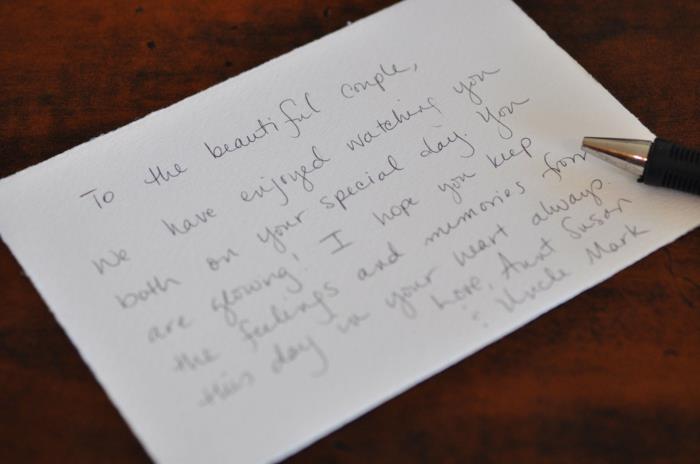 To the beautiful couple,
We have enjoyed watching you
both on your special day. You
are glowing! I hope you keep
the feelings and memories from
this day in your heart always.
Love, Aunt Susan
& Uncle Mark